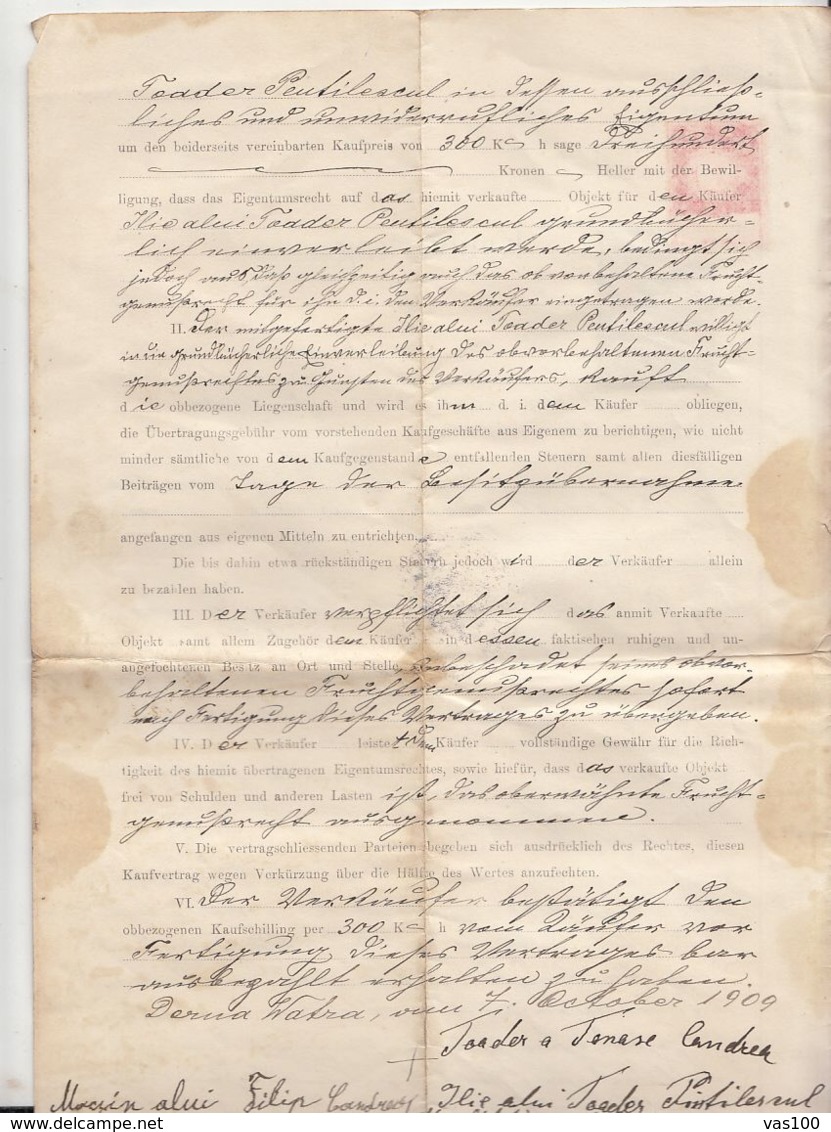 Toader Pentilescul in dessen ausschließ-
liches und unwiderrufliches Eigentum
um den beiderseits vereinbarten Kaufpreis von 300 K h sage Dreihundert
Kronen Heller mit der Bewil-
ligung, dass das Eigentumsrecht auf das hiemit verkaufte Objekt für den Käufer
Ilie alui Toader Pentilescul grundbücher-
lich einverleibt werde, bedingt sich
jedoch aus, daß gleichzeitig auch das ob vorbehaltene Frucht-
genußrecht für ihn d. i. den Verkäufer eingetragen werde.
II. Der mitgefertigte Ilie alui Toader Pentilescul willigt
in die grundbücherliche Einverleibung des obvorbehaltenen Frucht-
genußrechtes zu Gunsten des Verkäufers, kauft
die obbezogene Liegenschaft und wird es ihm d. i. dem Käufer obliegen,
die Übertragungsgebühr vom vorstehenden Kaufgeschäfte aus Eigenem zu berichtigen, wie nicht
minder sämtliche von dem Kaufgegenstande entfallenden Steuern samt allen diesfälligen
Beiträgen vom Tage der Besitzübernahme
angefangen aus eigenen Mitteln zu entrichten.
Die bis dahin etwa rückständigen Steuern jedoch wird der Verkäufer allein
zu bezahlen haben.
III. Der Verkäufer verpflichtet sich das anmit Verkaufte
Objekt samt allem Zugehör dem Käufer in dessen faktischen ruhigen und un-
angefochtenen Besitz an Ort und Stelle, unbeschadet seines obvor-
behaltenen Fruchtgenußrechtes sofort
nach Fertigung dieses Vertrages zu übergeben.
IV. Der Verkäufer leistet dem Käufer vollständige Gewähr für die Rich-
tigkeit des hiemit übertragenen Eigentumsrechtes, sowie hiefür, dass das verkaufte Objekt
frei von Schulden und anderen Lasten ist, das oberwähnte Frucht-
genußrecht ausgenommen.
V. Die vertragschliessenden Parteien begeben sich ausdrücklich des Rechtes, diesen
Kaufvertrag wegen Verkürzung über die Hälfte des Wertes anzufechten.
VI. Der Verkäufer bestätigt den
obbezogenen Kaufschilling per 300 K h vom Käufer vor
Fertigung dieses Vertrages bar
ausbezahlt erhalten zu haben.
Dorna Watra, am 7. October 1909
Toader a Tenase Candrea
Filip Candrea Ilie alui Toader Pintilescul
vas100